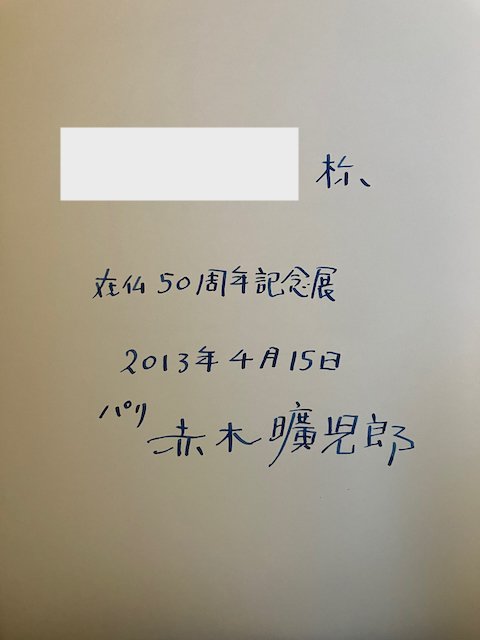 様、
在仏50周年記念展
2013年4月15日
パリ 赤木曠児郎